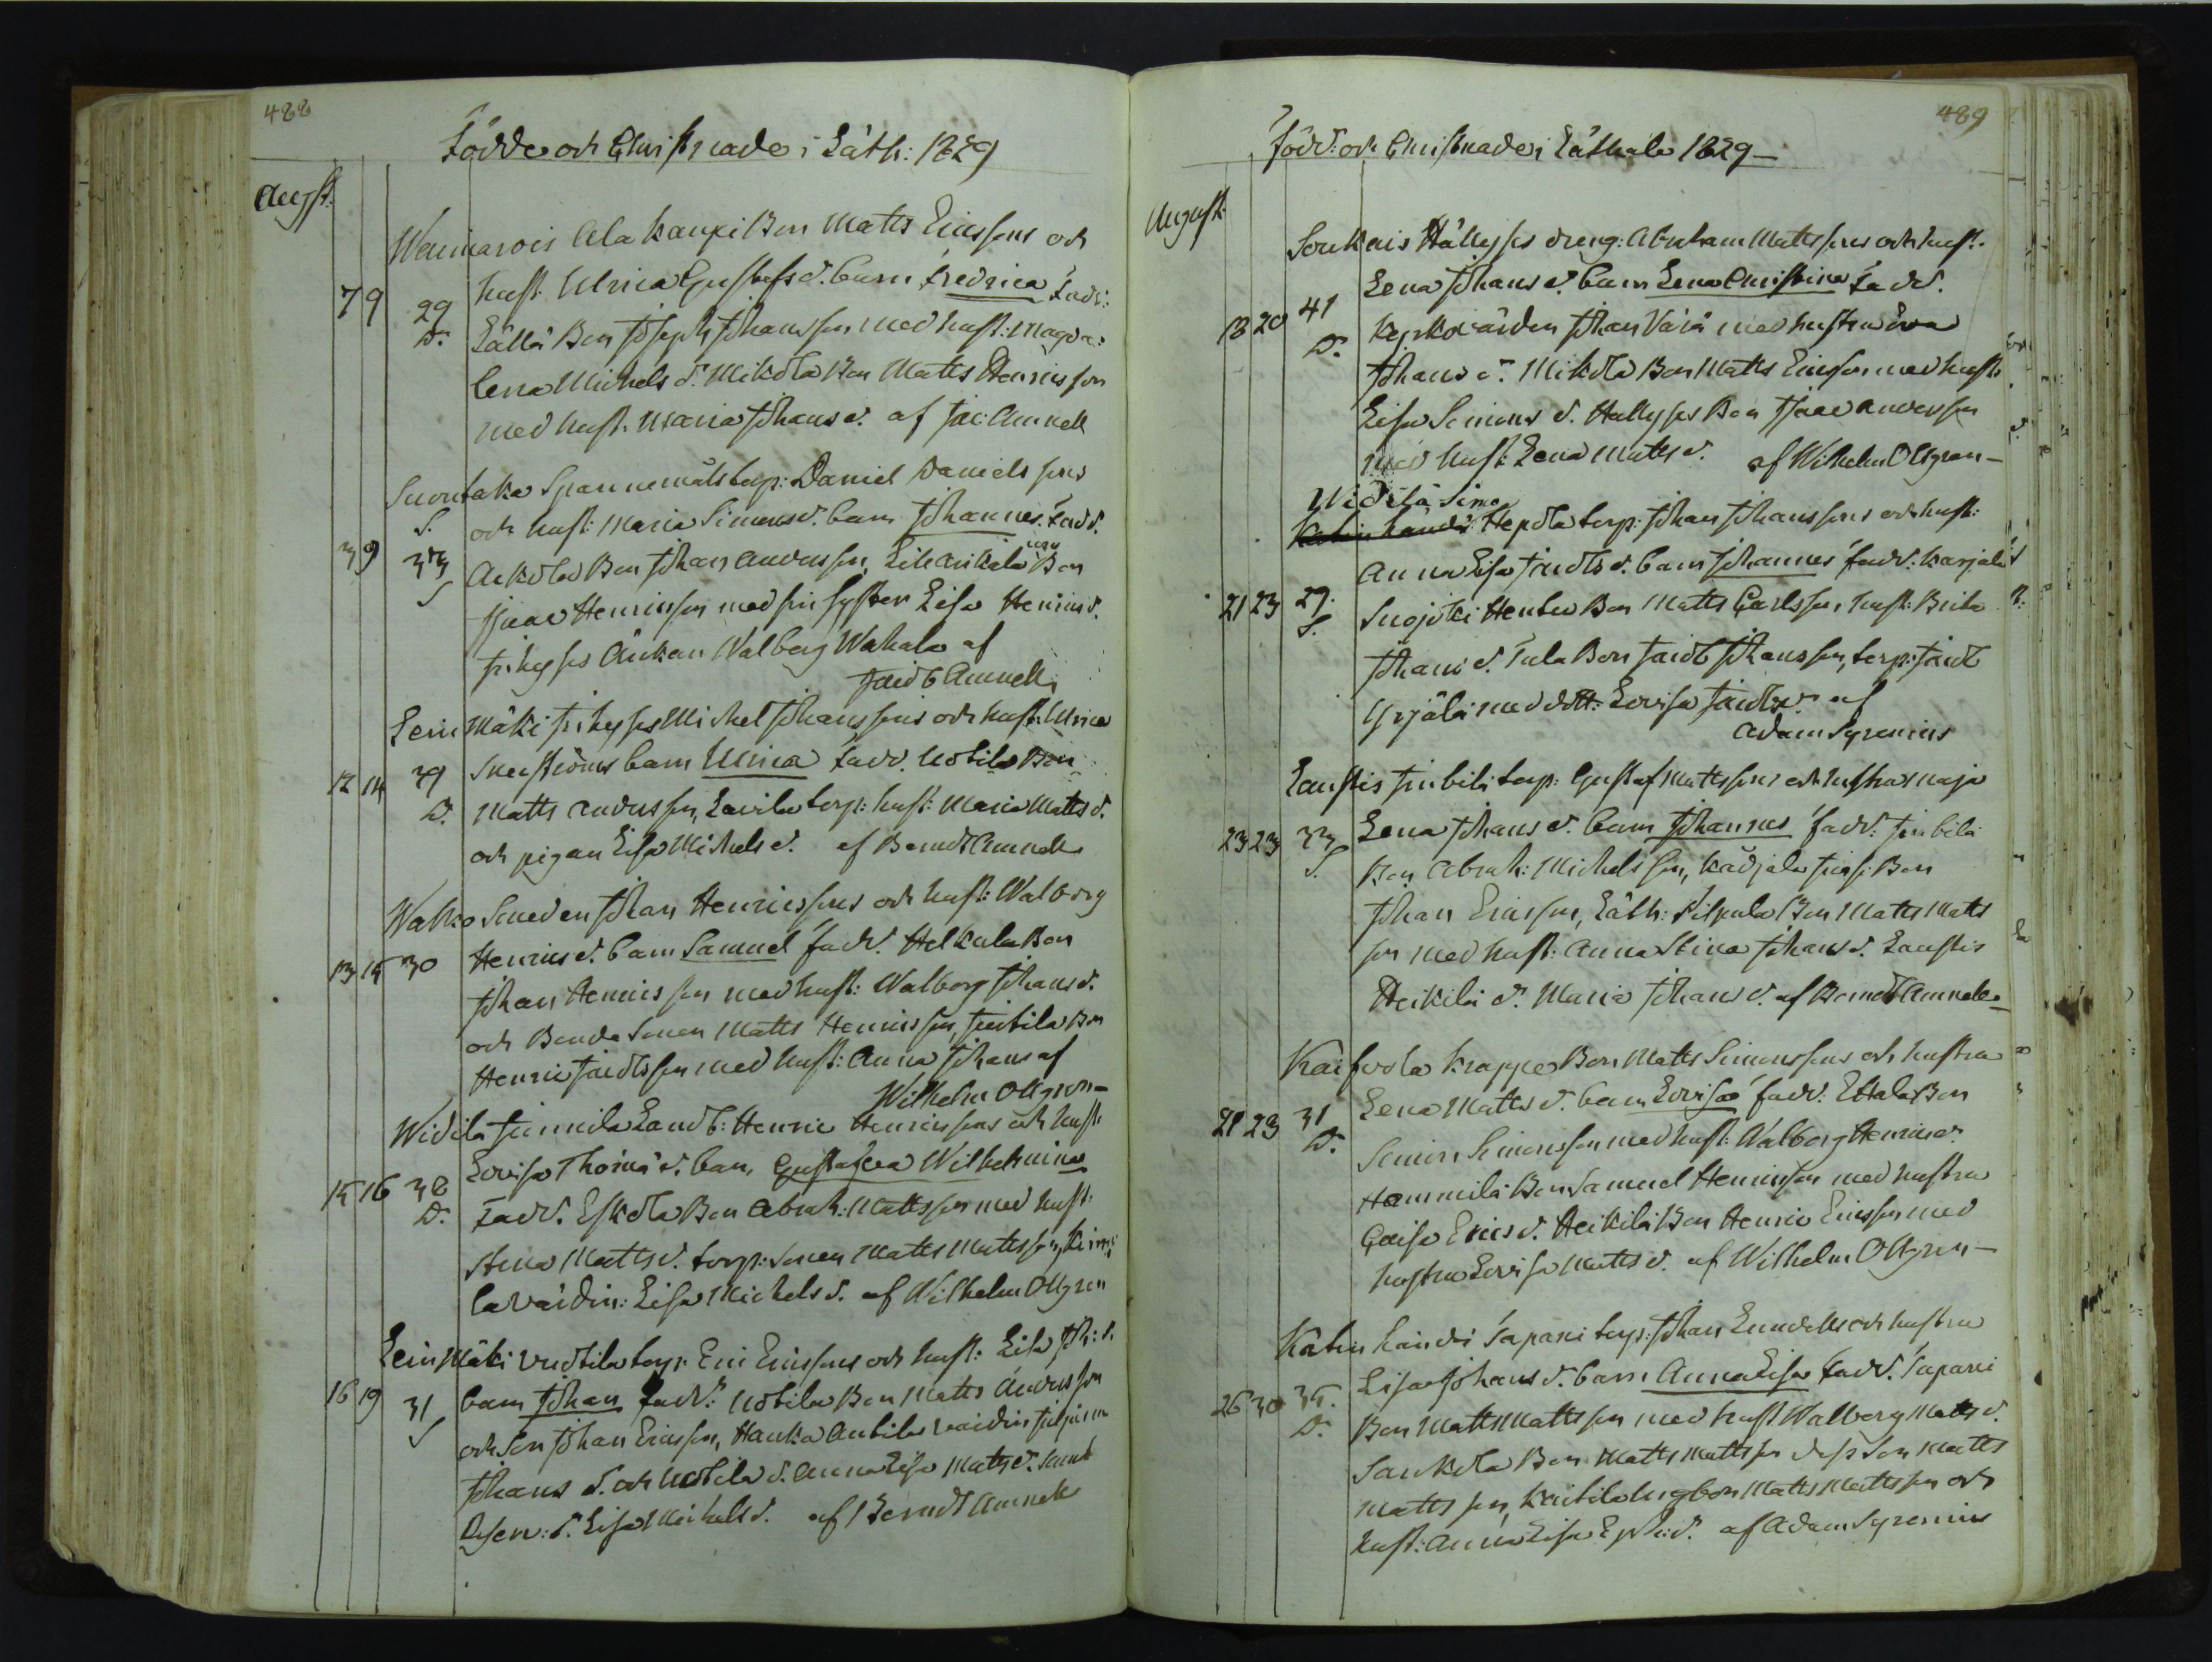 488
Födde och Christnade i Läth: 1829
Augst:
Wanniarois Ala Kauxi Bon Matts Ericssons och
hust. Ulrica Gustafs d. barn Fredrica Fadd:
7 9 29 D. Källä Bon Joseph Johansson med hust: Magda:
lena Michels d. Mikola Bon Matts Henricsson
med hust. Maria Johans d. af Jac: Amnell
Suontaka Spannemåls torp: Daniel Daniels sons
S. och hust: Maria Simons d. barn Johannes. Fadd.
3 9 33 Johan Andersson, Bon
S Isaac Henricsson med sin syster Lisa Henrics d.
Inhyses Änkan Walborg Wahala af
Jacob Amnell
Leinmäki Inhyses Michel Johanssons och hust: Ulrica
barn Ulrica Fadd. Uotila Bon
12 14 39 D. Matts Andersson, Lavila torp: hust: Maria Matts d.
och pigan Lisa Michels d. af Berndt Amnell
Walko Smeden Johan Henricssons och hust: Walborg
13 15 30 Henrics d. barn Samuel Fadd. Helkula Bon
Johan Henricsson med hust: Walborg Johans d.
och Bonda Sonen Matts Henricsson, Bon
Henric Jacobsson med hust: Anna Johans af
Wilhelm Ollgren
Widilä Landb: Henric Henricssons och hust:
Lovisa Thomæ d. barn Gustafva Wilhelmina
15 16 38 D. Fadd. Eskola Bon Abrah: Mattsson med hust:
Stina Matts d. torp: Sonen Matts Mattsson,
Lisa Michels d. af Wilhelm Ollgren
Leinmäki Uudtila torp: Eric Ericssons och hust: Lisa Joh: d.
16 19 31 S barn Johan Fadd: Uotila Bon Matts Andersson
och Son Johan Ericsson, Hanka Anttila
Johans d. och Uotila d. Anna Lisa Matts d. samt
Lisa Michels d. af Berndt Amnell
489
Född: och Christnade i Läthala 1829
August.
Soukais Hällyses dreng: Abraham Mattssons och hust.
Lena Johans d. barn Lena Christina Fadd.
18 20 41 D. Kyrkovärden Johan Värä med hustru
Johans d. Mikola Bon Matts Ericsson med hust:
Lisa Simons d. Hallyses Bon Isaac Andersson
med hust: Lena Matts d. af Wilhelm Ollgren
Widilä Sima
Hepola torp: Johan Johanssons och hust:
Anna Lisa Jacobs d. barn Johannes Fadd: Karjala
21 23 29. S. Suojoki Hentu Bon Matts Carlsson, hust: Brita
Johans d. Tula Bon Jacob Johansson, torp: Jacob
Yrjälä med dott: Lovisa Jacobs d. af
Adam Syrenius
Laustis torp: Gustaf Mattssons och hustru Maja
23 23 33 S. Lena Johans d. barn Johannes Fadd:
Bon Abrah: Michelsson, Kädjala Bon
Johan Ericsson, Läth: Filpula Bon Matts Matts
son med hust: Anna Stina Johans d. Laustis
Heikilä d. Maria Johans d. af Berndt Amnell
Kaisvola Krappe Bon Matts Simonssons och hustru
Lena Matts d. barn Lovisa Fadd: Ettala Bon
21 23 31 D. Simon Simonsson med hust: Walborg Henrics d.
Hemmilä Bon Samuel Henricsson med hustru
Caisa Erics d. Heikilä Bon Henric Ericsson med
hustru Lovisa Matts d. af Wilhelm Ollgren
Katinhändi Tapani torp: Johan Lundells och hustru
Lisa Johans d. barn Anna Lisa Fadd. Tapani
26 30 35. D. Bon Matts Mattsson med hust Walborg Matts d.
Saukola Bon Matts Mattsson dess Son Matts
Mattsson, Matts Mattsson och
hust: Anna Lisa d. af Adam Syrenius